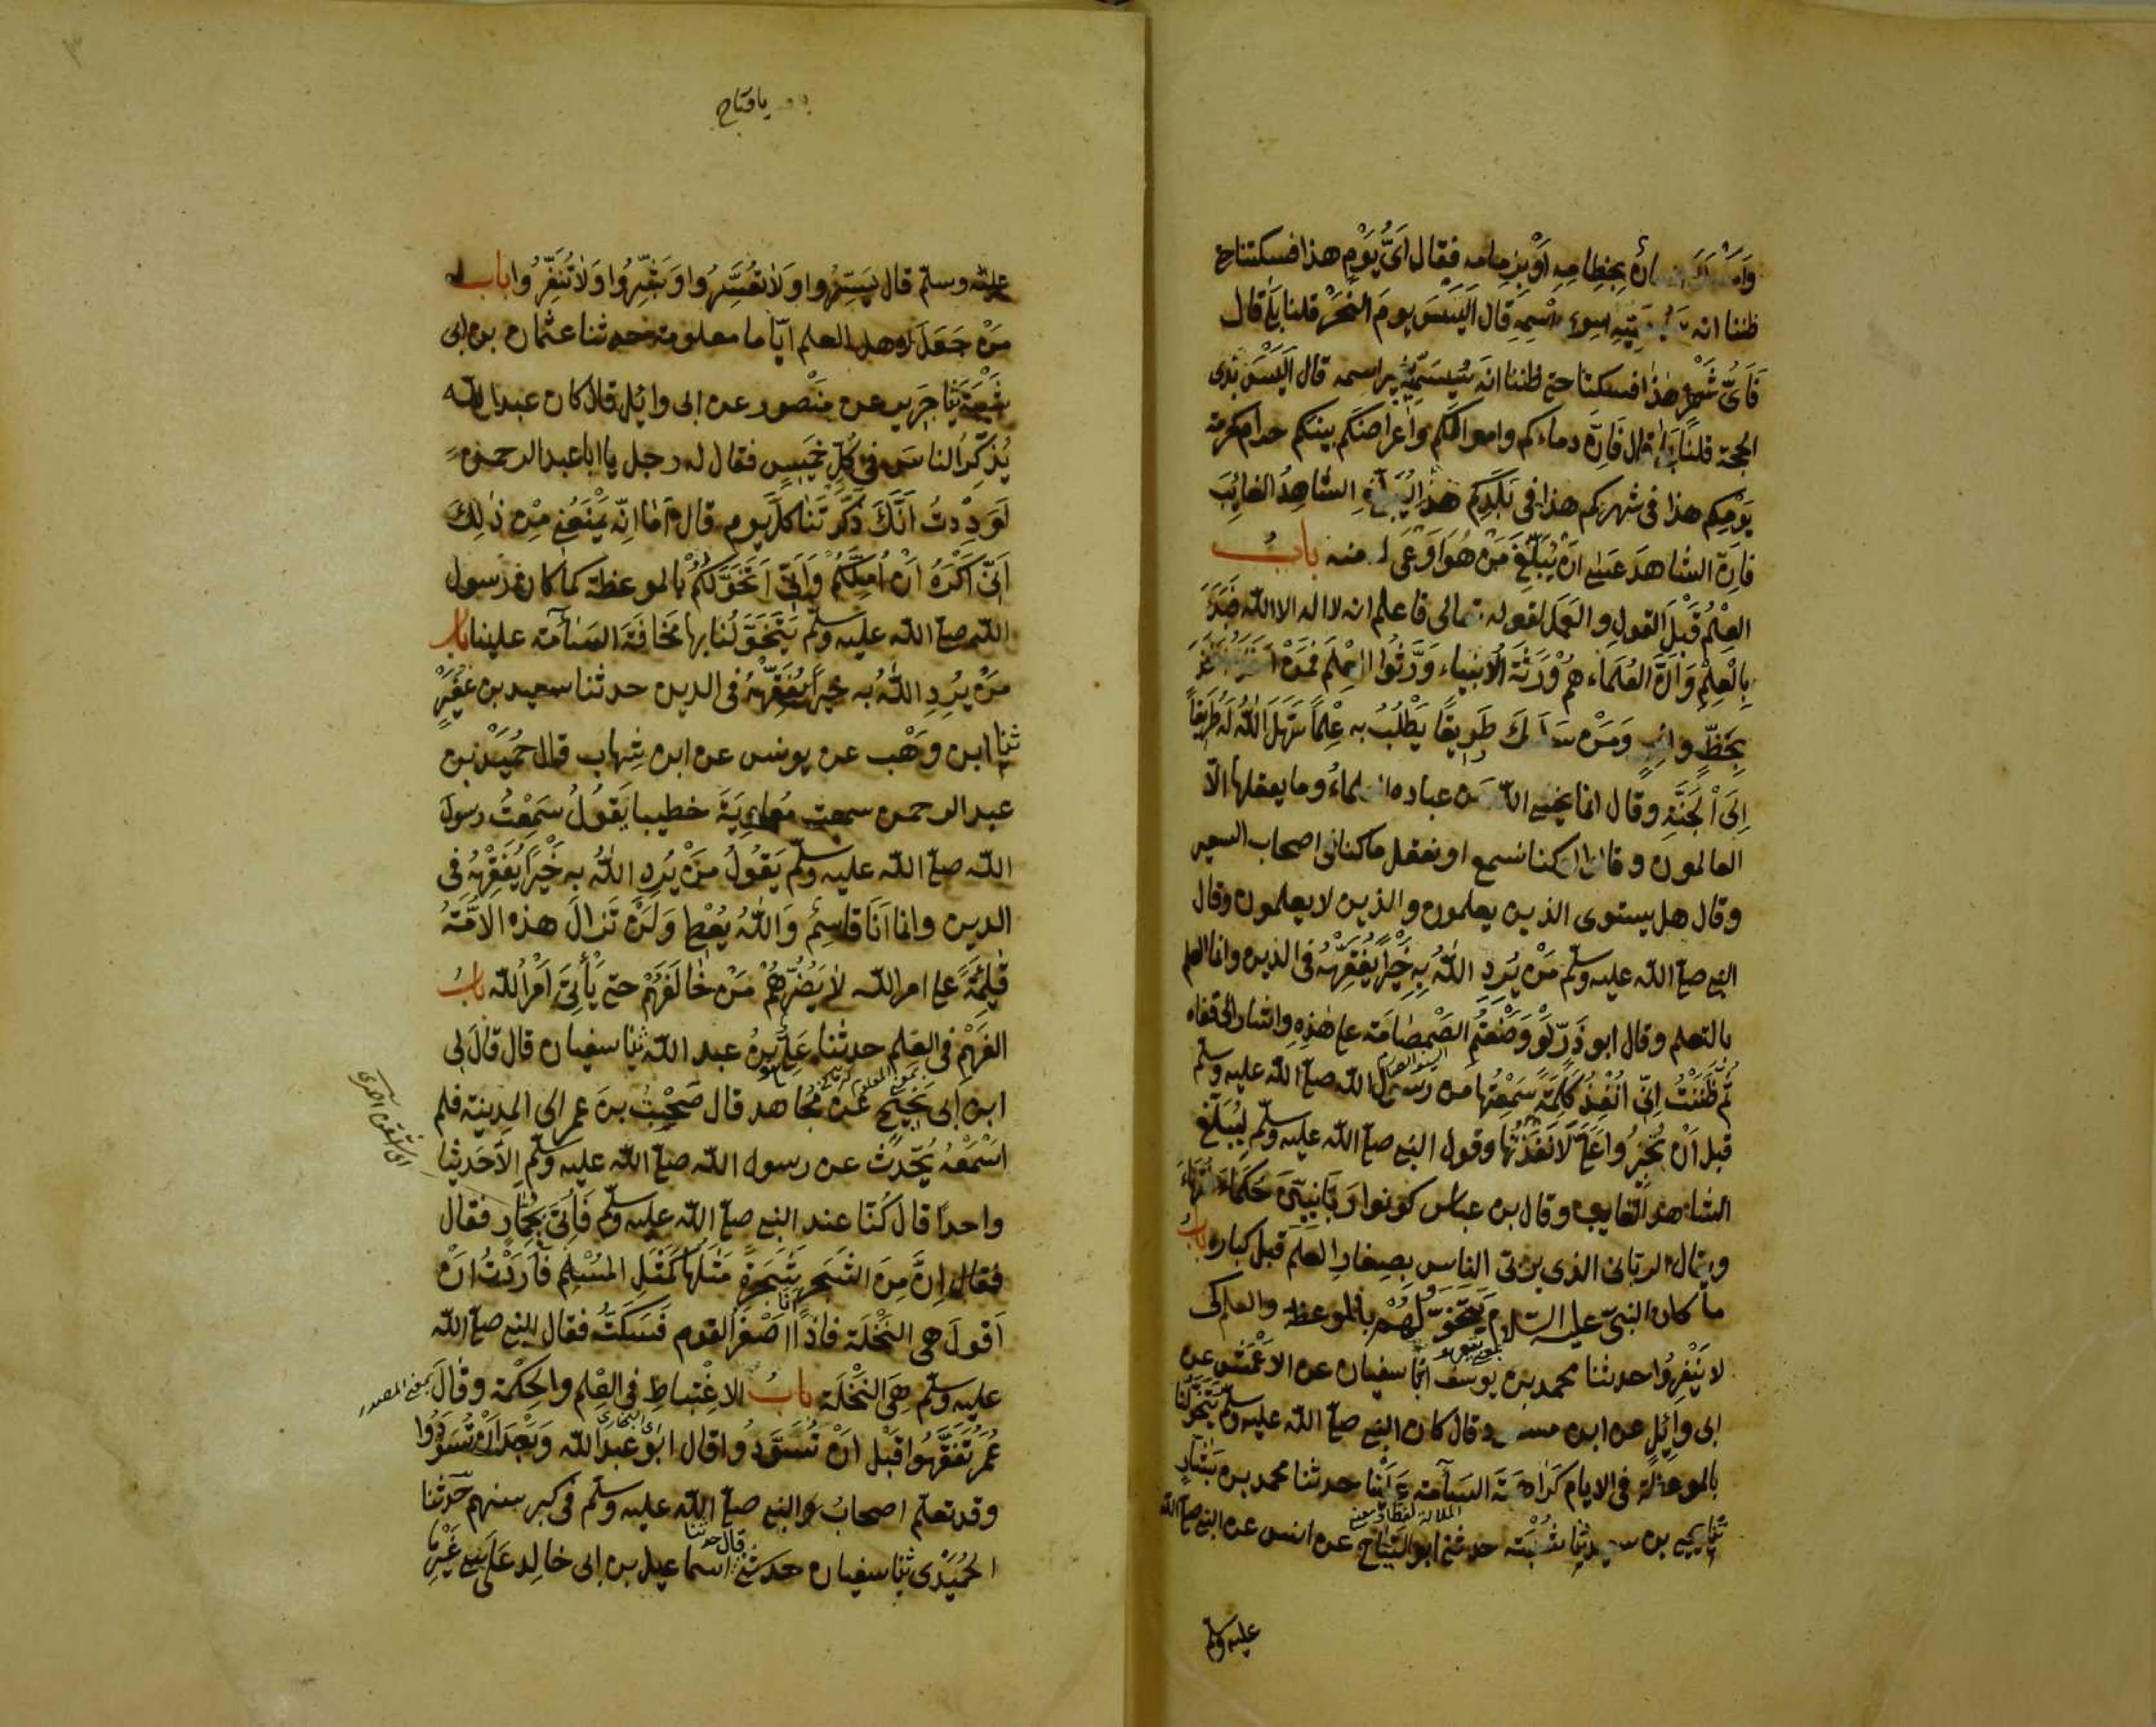 وامسك انسان بخطامه او بزمامه فقال اَىُّ يَوْمٍ هذا فسكتنا حتى
ظننا انه سيسميه سوى اسمه قال اَلَيْسَ يومَ النَّحْرِ قلنا بلى قال
فَاَىُّ شَهْرٍ هذا فسكتنا حتى ظننا انه سَيُسَمِّيْهِ بغير اسمه قال اَلَيْسَ بذى
الحجة قلنا بلى قال فَاِنَّ دماءكم واموالكم واعراضكم بينكم حرام كحرمة
يَوْمِكم هذا فى شهركم هذا فى بَلَدِكم هذا لِيُبَلِّغِ الشاهِدُ الغائِبَ
فاِنَّ الشاهدَ عسى ان يُبَلِّغَ مَنْ هُوَ اَوْعَى له منه بابُ
العِلْمُ قَبْلَ القولِ والعَمَلِ لقوله تعالى فاعلم انه لا اله الا الله فبَدَأَ
بِالْعِلْمِ وَاَنَّ العُلَمَاءَ هُمْ وَرَثَةُ الْاَنبياء وَرَّثُوا الْعِلْمَ فمَنْ اَخَذَهُ اَخَذَ
بِحَظٍّ وافِرٍ وَمَنْ سَلَكَ طَرِيقًا يَطْلُبُ به عِلْمًا سَهَّلَ اللّٰهُ لَهُ طَرِيقًا
اِلَى الْجَنَّةِ وقال انما يخشى اللّٰه من عباده العلماءُ وما يعقلها الّا
العالمون وقالوا لو كنا نسمع او نعقل ما كنا فى اصحاب السعير
وقال هل يستوى الذين يعلمون والذين لا يعلمون وقال
النبى صلى الله عليه وسلم مَنْ يُرِدِ اللّٰهُ بِهِ خَيْرًا يُفَقِّهْهُ فى الدين وانما العلم
بالتعلم وقال ابو ذَرٍّ لَوْ وَضَعْتُم الصَّمْصَامَةَ على هٰذِهِ واشار الى قفاه
السيف الصارم
ثُمَّ ظَنَنْتُ اِنِّى اُنْفِذُ كَلِمَةً سَمِعْتُها من رسول الله صلى الله عليه وسلم
قبل اَنْ تُجِيْزُوا عَلَىَّ لَاَنْفَذْتُها وقول النبى صلى الله عليه وسلم لِيُبَلِّغِ
الشاهدُ الغايبَ وقال بن عباس كونوا رَبَّانِيّينَ حُكَمَاءَ فُقَهَاءَ
ويقال الربانى الذى يربّى الناس بِصِغارِ العلم قبل كباره بابُ
ما كان النبىّ عليه السلام يَتَخَوَّلُهُمْ بالموعظة والعلم كى
لا يَنْفِرُوا حدثنا محمد بن يوسف انا سفيان عن الاَعْمَشِ عن
ابى وائِلٍ عن ابن مسعود قال كان النبى صلى الله عليه وسلم يَتَخَوَّلُنا
بالموعظة فى الايام كَرَاهَةَ السَآمة عَلَيْنا حدثنا محمد بن بَشّارٍ
ثنا يحيى بن سعيد ثنا شُعْبَة حدثنى ابو التيّاح عن انس عن النبى صلى الله
عليه وسلم
يا فتاح
عليه وسلم قال يَسِّرُوا وَلَا تُعَسِّرُوا وَبَشِّرُوا وَلَا تُنَفِّرُوا باب
مَنْ جَعَلَ لاهل العلم ايّاما معلومة حدثنا عثمان بن ابى
شَيْبَةَ ثنا جَرِير عن مَنْصور عن ابى وائِل قال كان عبد اللّٰه
يُذَكِّرُ الناسَ فى كُلِّ خَمِيسٍ فقال له رجل يا ابا عبد الرحمن
لَوَدِدْتُ اَنَّكَ ذَكَّرْتَنا كلَّ يوم قال اَمَا اِنّه يَمْنَعُنِى مِنْ ذٰلِكَ
اَنِّى اَكْرَهُ اَنْ اُمِلَّكُمْ وَاِنِّى اَتَخَوَّلُكُمْ بالموعظة كما كان رسول
اللّٰه صلى اللّٰه عليه وسلم يَتَخَوَّلُنا بها مَخَافَةَ السَّآمة علينا باب
مَنْ يُرِدِ اللّٰهُ به خيرًا يُفَقِّهْهُ فى الدين حدثنا سعيد بن عُفَيْرٍ
ثنا ابن وَهْب عن يونس عن ابن شِهاب قال قال حُمَيْدُ بن
عبد الرحمن سمعت مُعاوِيَةَ خطيبا يَقُولُ سَمِعْتُ رسول
اللّٰه صلى اللّٰه عليه وسلم يَقُولُ مَنْ يُرِدِ اللّٰهُ به خَيْرًا يُفَقِّهْهُ فى
الدين وانما اَنَا قاسِمٌ وَاللّٰهُ يُعْطِى وَلَنْ تَزالَ هذه الاُمَّةُ
قَائِمَةً على امر اللّٰه لَا يَضُرُّهُمْ مَنْ خَالَفَهُمْ حتى يَأْتِىَ اَمْرُ اللّٰه بابُ
الفَهْمِ فى العِلم حدثنا عَلِىُّ بنُ عبد اللّٰه ثنا سفيان قال قال لِى
ابن اَبى نَجِيْحٍ عن مُجَاهد قال صَحِبْتُ بنَ عمر الى المدينة فلم
اَسْمَعْهُ يُحَدِّثُ عن رسول اللّٰه صلى اللّٰه عليه وسلم اِلّا حَدِيثًا
واحدًا قال كُنّا عند النبى صلى اللّٰه عليه وسلم فَاُتِىَ بِجُمَّارٍ فقال
فقال اِنَّ مِنَ الشَجَرِ شَجَرةً مَثَلُها كَمَثَلِ المُسْلِمِ فاَرَدْتُ اَنْ
اَقولَ هى النَّخْلَة فاذا انا اَصْغَرُ القوم فَسَكَتُّ فقال النبى صلى اللّٰه
عليه وسلم هِىَ النَّخْلَة بابُ الاِغْتِباطِ فى العِلم والحِكْمة وقال
بمعنى المصدر
عُمَرُ تَفَقَّهُوا قَبْلَ اَنْ تُسَوَّدُوا قال ابُو عَبد اللّٰه وَبَعْدَ اَنْ تُسَوَّدُوا
اى البخارى
وقد تعلم اصحابُ النبى صلى اللّٰه عليه وسلم فى كبر سنهم حدثنا
الحُمَيْدى ثنا سفيان حدثنى اسماعيل بن ابى خالد عَلَى غَيْرِ مَا
قال حدثنا